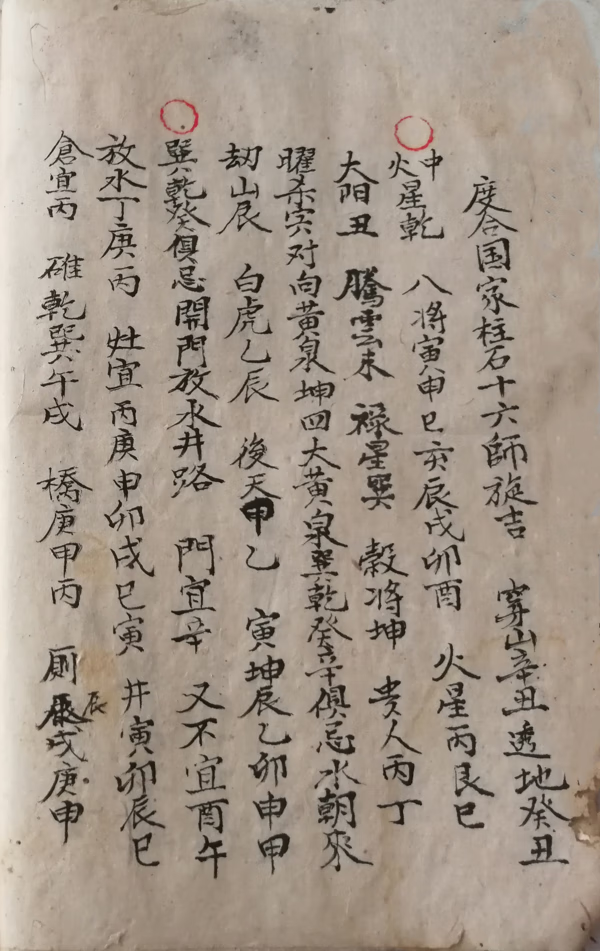 度合国家柱石十六師旋吉 穿山辛丑透地癸丑
中火星乾 八将寅申巳亥辰戌卯酉 火星丙艮巳
大阳丑 騰雲未 禄星巽 穀将坤 贵人丙丁
曜杀宾对向黄泉坤四大黄泉巽乾癸辛俱忌水朝來
刼山辰 白虎乙辰 後天甲乙 寅坤辰乙卯申甲
巽乾癸俱忌開門放水井路 門宜辛 又不宜酉午
放水丁庚丙 灶宜丙庚申卯戌巳寅 井寅卯辰巳
倉宜丙 碓乾巽午戌 橋庚甲丙 厠辰戌庚申